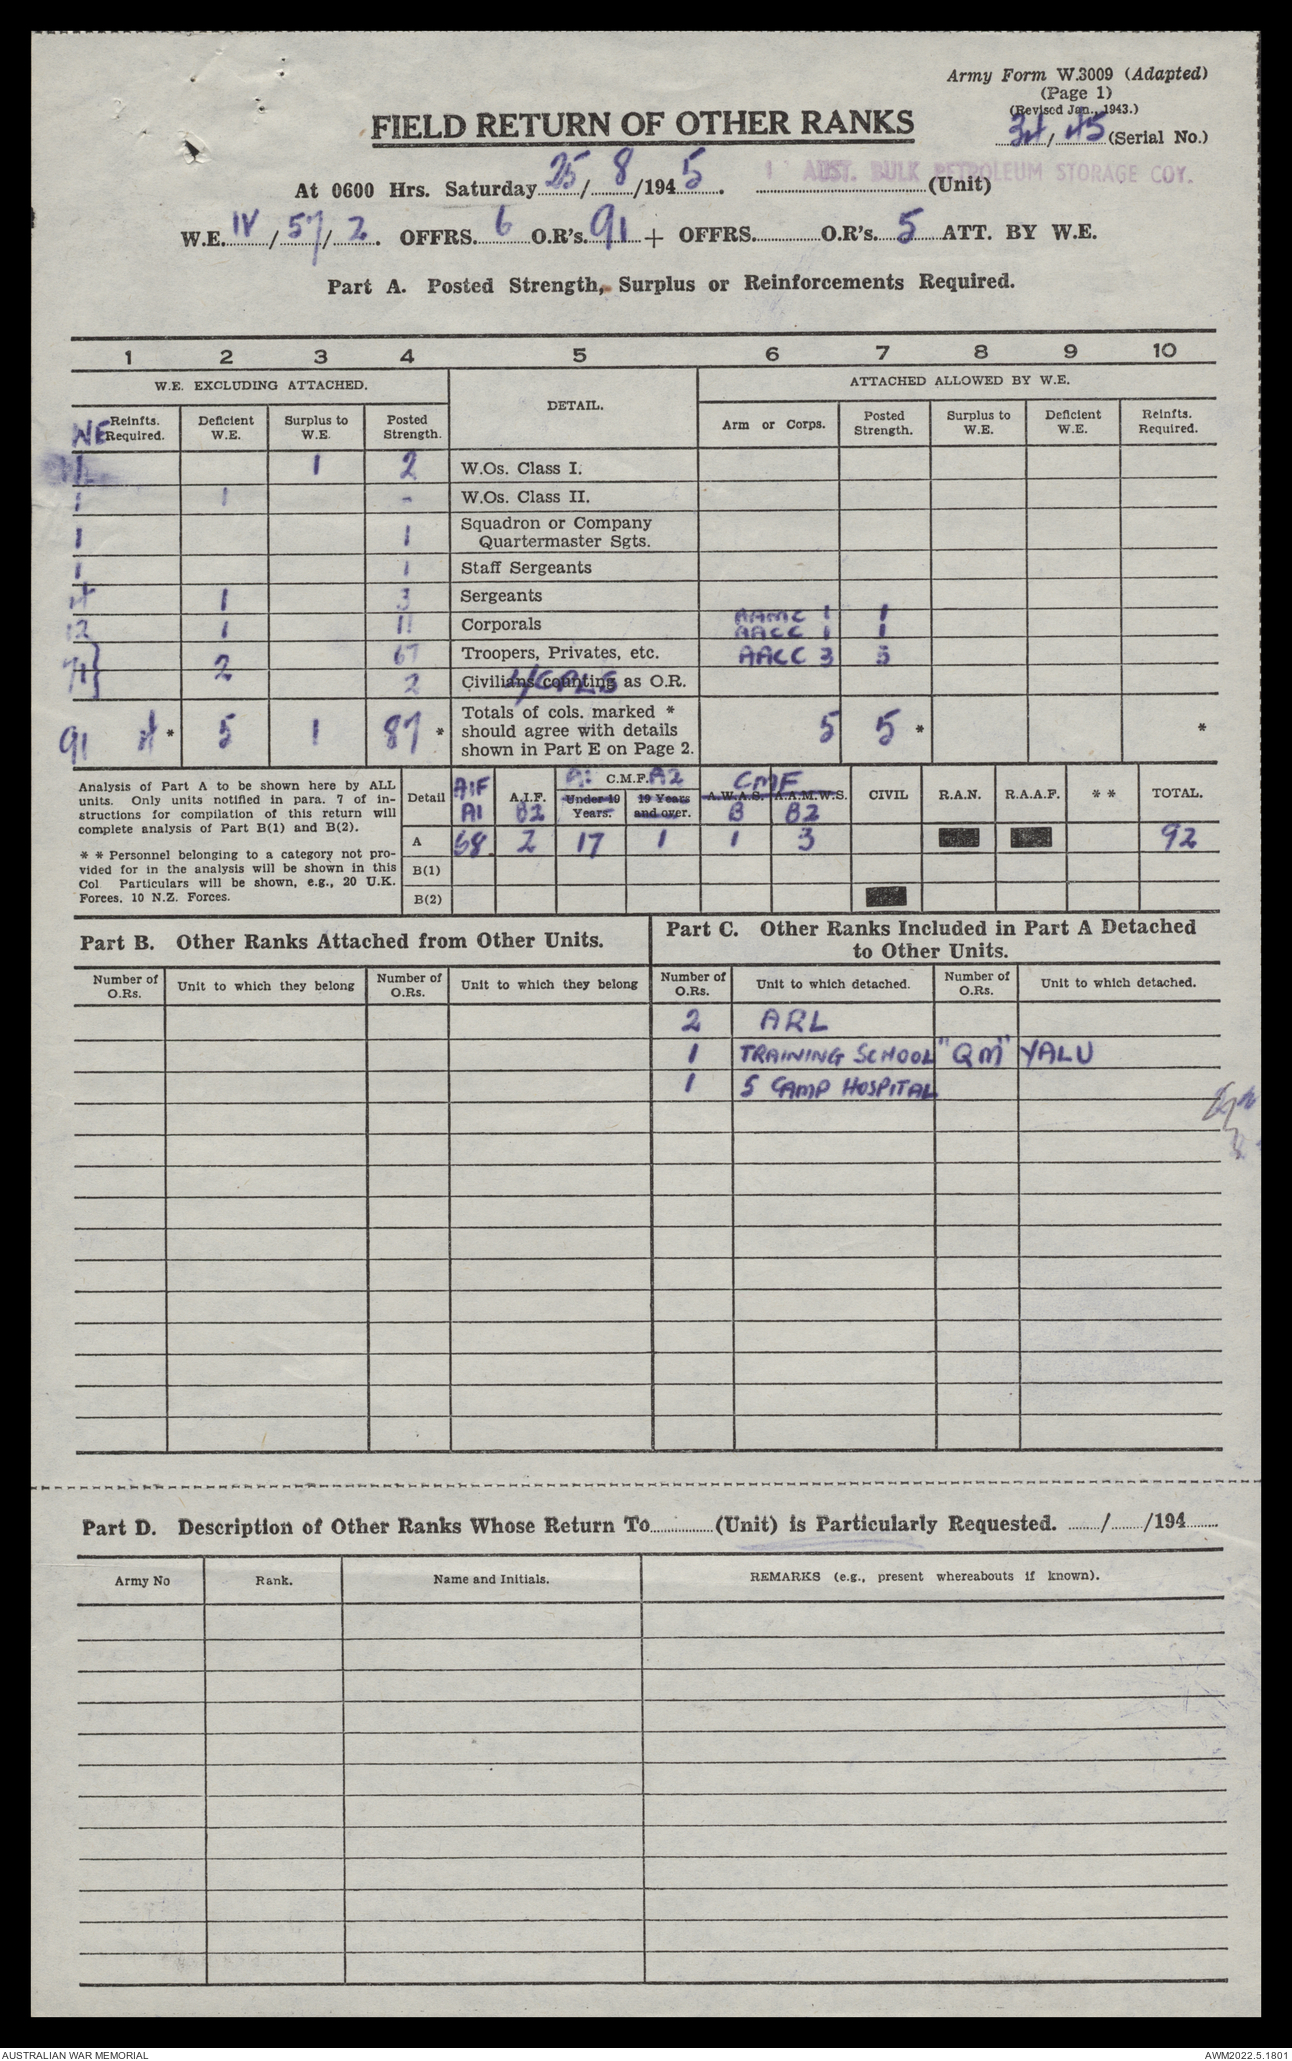 Army Form W.3009 (Adapted)
(Page 1)
(Revised Jan., 1943.)
34/45 (Serial No.)
FIELD RETURN OF OTHER RANKS
1 AUST. BULK PETROLEUM STORAGE COY.
At 0600 Hrs. Saturday 25/8/1945. (Unit)
W.E. IV/57/2. OFFRS. 6 O.R's. 91 + OFFRS. O.R's. 5 ATT. BY W.E.
Part A. Posted Strength, Surplus or Reinforcements Required.
1 2 3 4 5 6 7 8 9 10
W.E. EXCLUDING ATTACHED. DETAIL. ATTACHED ALLOWED BY W.E.
WE Reinfts. Required. Deficient W.E. Surplus to W.E. Posted Strength. Arm or Corps. Posted Strength. Surplus to W.E. Deficient W.E. Reinfts. Required.
1 1 2 W.Os. Class I.
1 1 - W.Os. Class II.
1 1 Squadron or Company Quartermaster Sgts.
1 1 Staff Sergeants
4 1 3 Sergeants
12 1 11 Corporals AAMC 1 1 AACC 1 1
71} 2 67 Troopers, Privates, etc. AACC 3 3
2 Civilians counting as O.R. L/CPLS
91 4 * 5 1 87 * Totals of cols. marked * should agree with details shown in Part E on Page 2. 5 5 * *
Analysis of Part A to be shown here by ALL
units. Only units notified in para. 7 of in-
structions for compilation of this return will
complete analysis of Part B(1) and B(2).
* * Personnel belonging to a category not pro-
vided for in the analysis will be shown in this
Col. Particulars will be shown, e.g., 20 U.K.
Forces, 10 N.Z. Forces.
Detail AIF A1 A.I.F. B2 A1 C.M.F. A2 Under 19 Years. 19 Years and over. CMF A.W.A.S. B A.A.M.W.S. B2 CIVIL R.A.N. R.A.A.F. * * TOTAL.
A 68 2 17 1 1 3 92
B(1)
B(2)
Part B. Other Ranks Attached from Other Units.
Part C. Other Ranks Included in Part A Detached
to Other Units.
Number of O.Rs. Unit to which they belong Number of O.Rs. Unit to which they belong Number of O.Rs. Unit to which detached. Number of O.Rs. Unit to which detached.
2 ARL
1 TRAINING SCHOOL "QM" YALU
1 5 CAMP HOSPITAL
Part D. Description of Other Ranks Whose Return To (Unit) is Particularly Requested. / /194
Army No Rank. Name and Initials. REMARKS (e.g., present whereabouts if known).
AUSTRALIAN WAR MEMORIAL AWM2022.5.1801